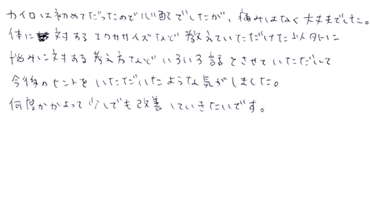 カイロは初めてだったので心配でしたが、痛みはなく大丈夫でした。
体に対するエクササイズなど教えていただけた以外に
悩みに対する考え方などいろいろ話をさせていただいて
今後のヒントをいただいたような気がしました。
何度かかよって少しでも改善していきたいです。